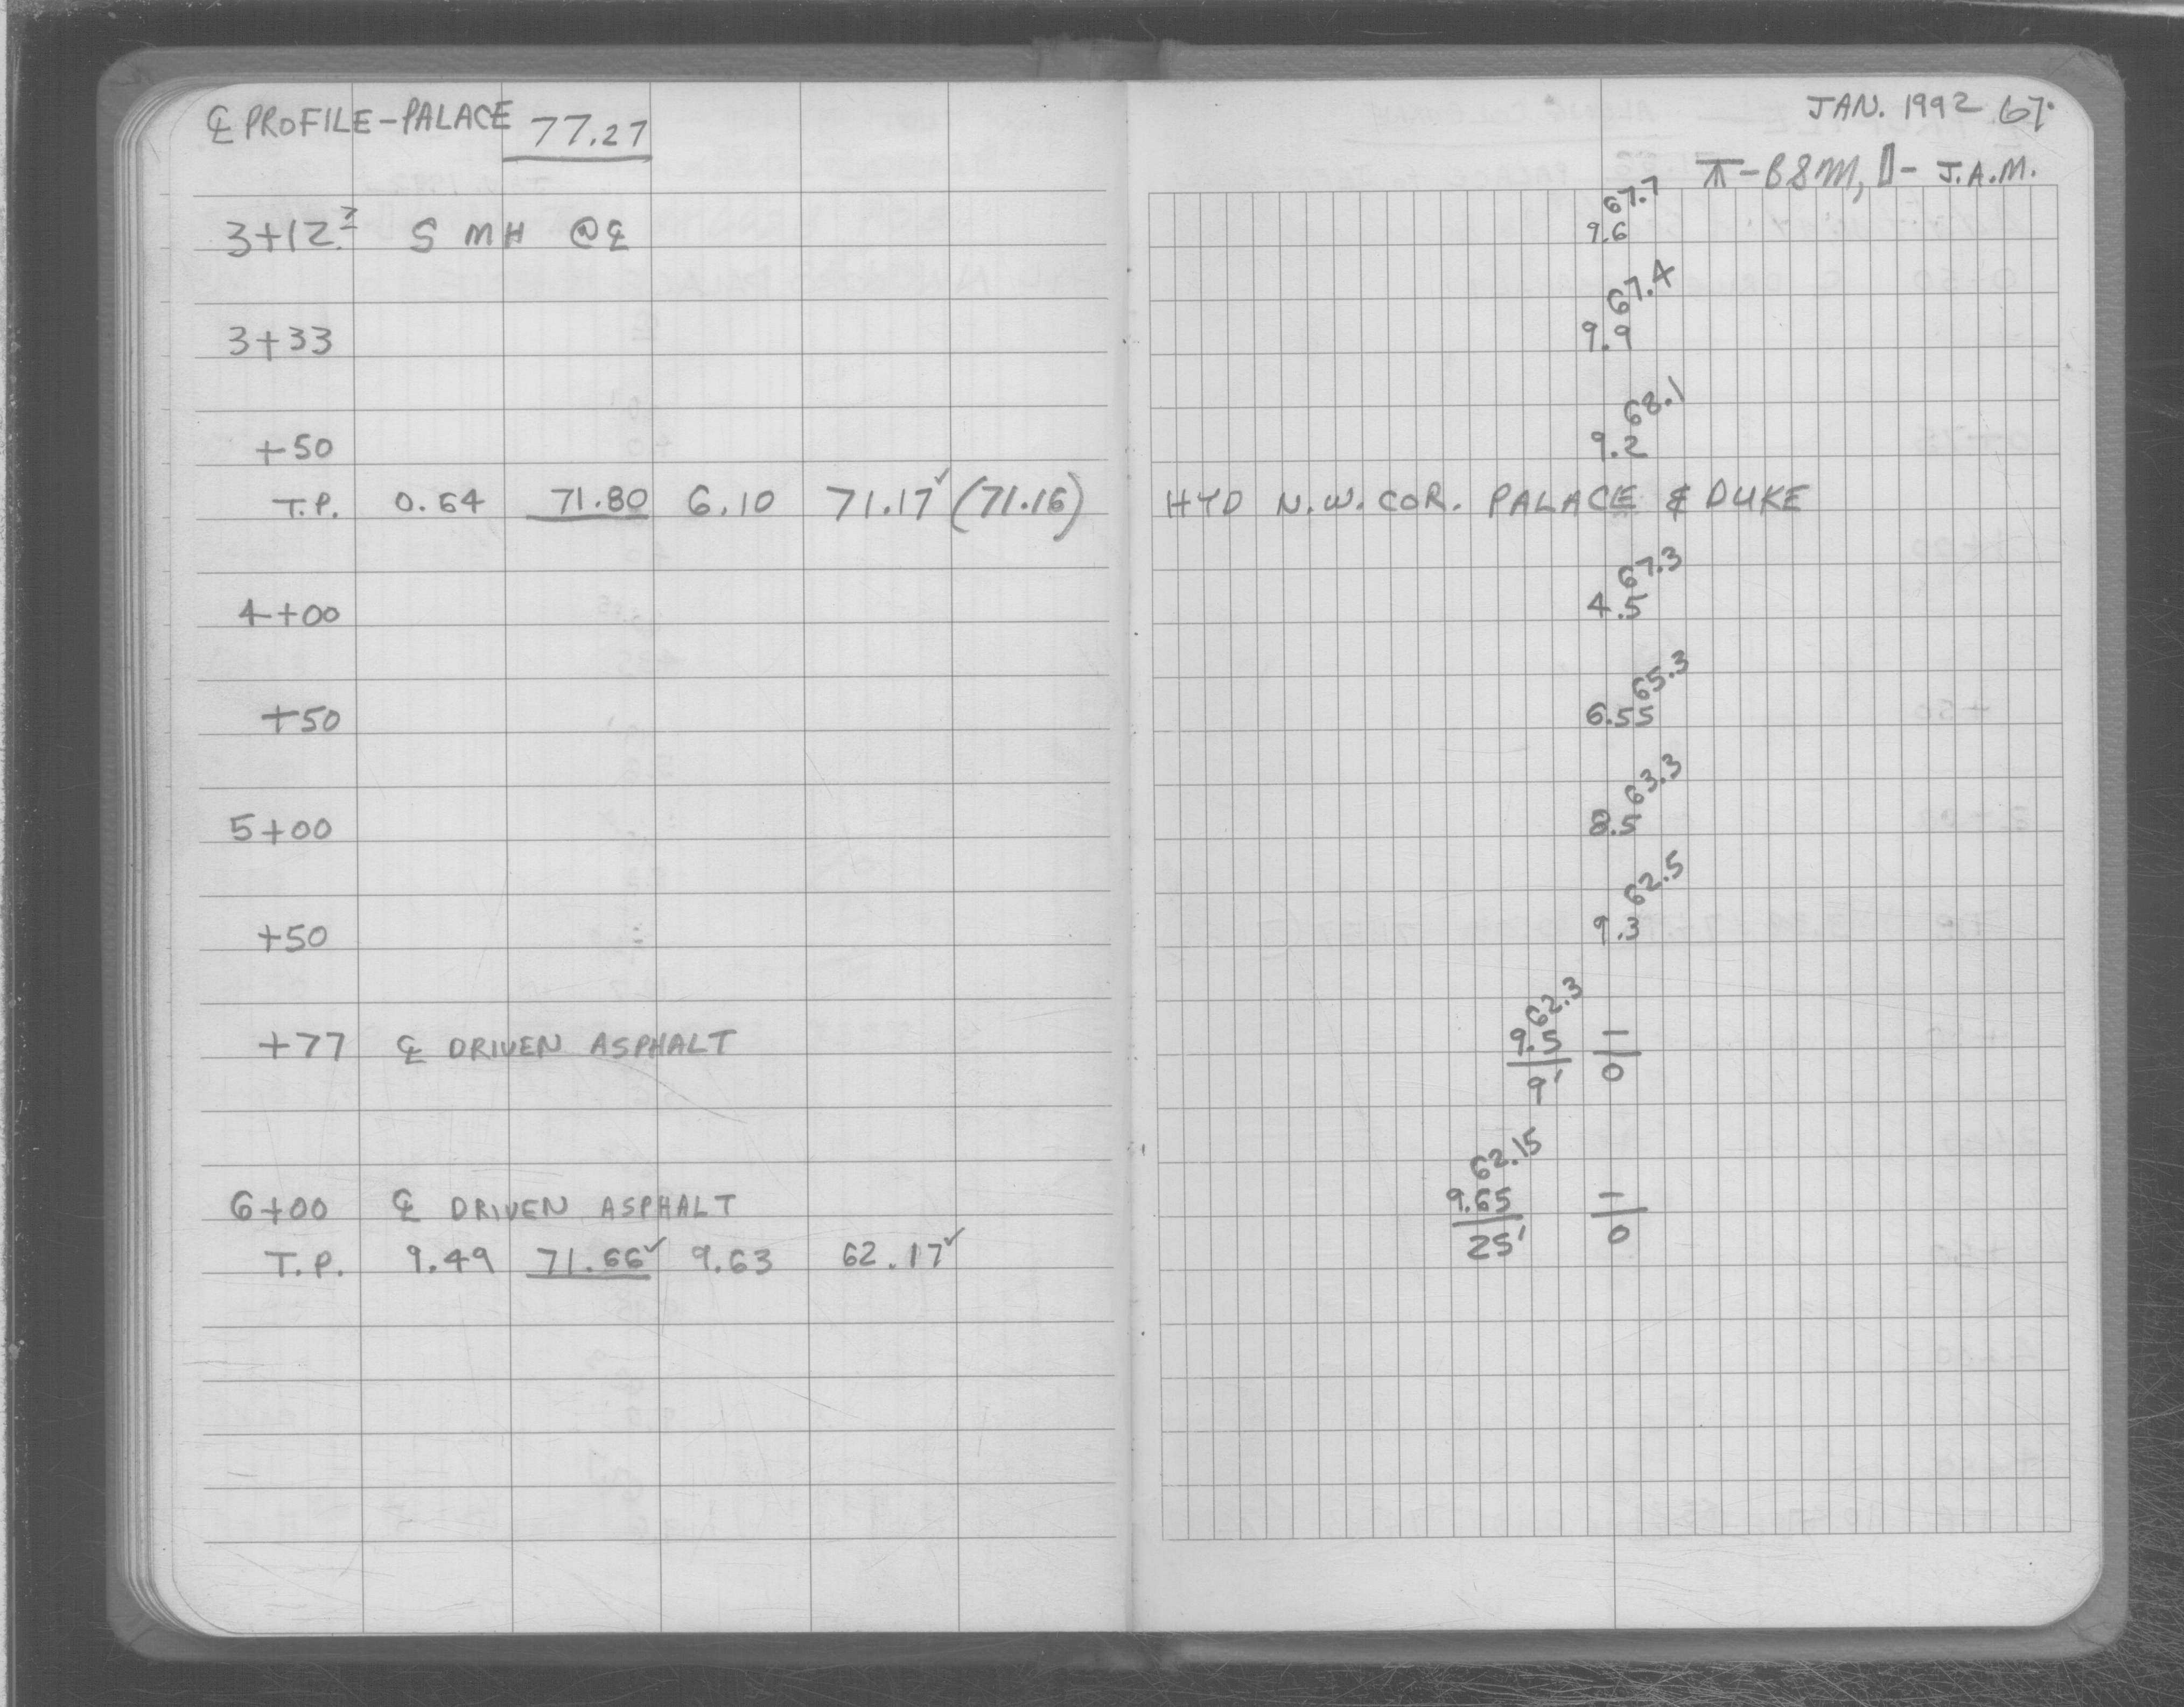 ℄ PROFILE-PALACE 77.27
JAN. 1992 67.
⊼-B&M, ▯- J.A.M.
67.7
3+12.7 S MH @℄ 9.6
67.4
3+33 9.9
68.1
+50 9.2
T.P. 0.64 71.80 6.10 71.17✓ (71.16) HYD N.W. COR. PALACE & DUKE
67.3
4+00 4.5
65.3
+50 6.55
63.3
5+00 8.5
62.5
+50 9.3
62.3
+77 ℄ DRIVEN ASPHALT 9.5/9' -/0
62.15
6+00 ℄ DRIVEN ASPHALT 9.65/25' -/0
T.P. 9.49 71.66✓ 9.63 62.17✓